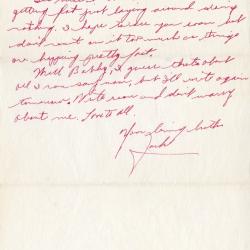 getting fat just laying around doing
nothing. I hope to see you soon but
don't count on it too much as things
are happening pretty fast.
Well Bobby, I guess that's about
all I can say now, but I'll write again
tomorrow. Write soon and don't worry
about me. Love to all.
Your loving brother
Jack